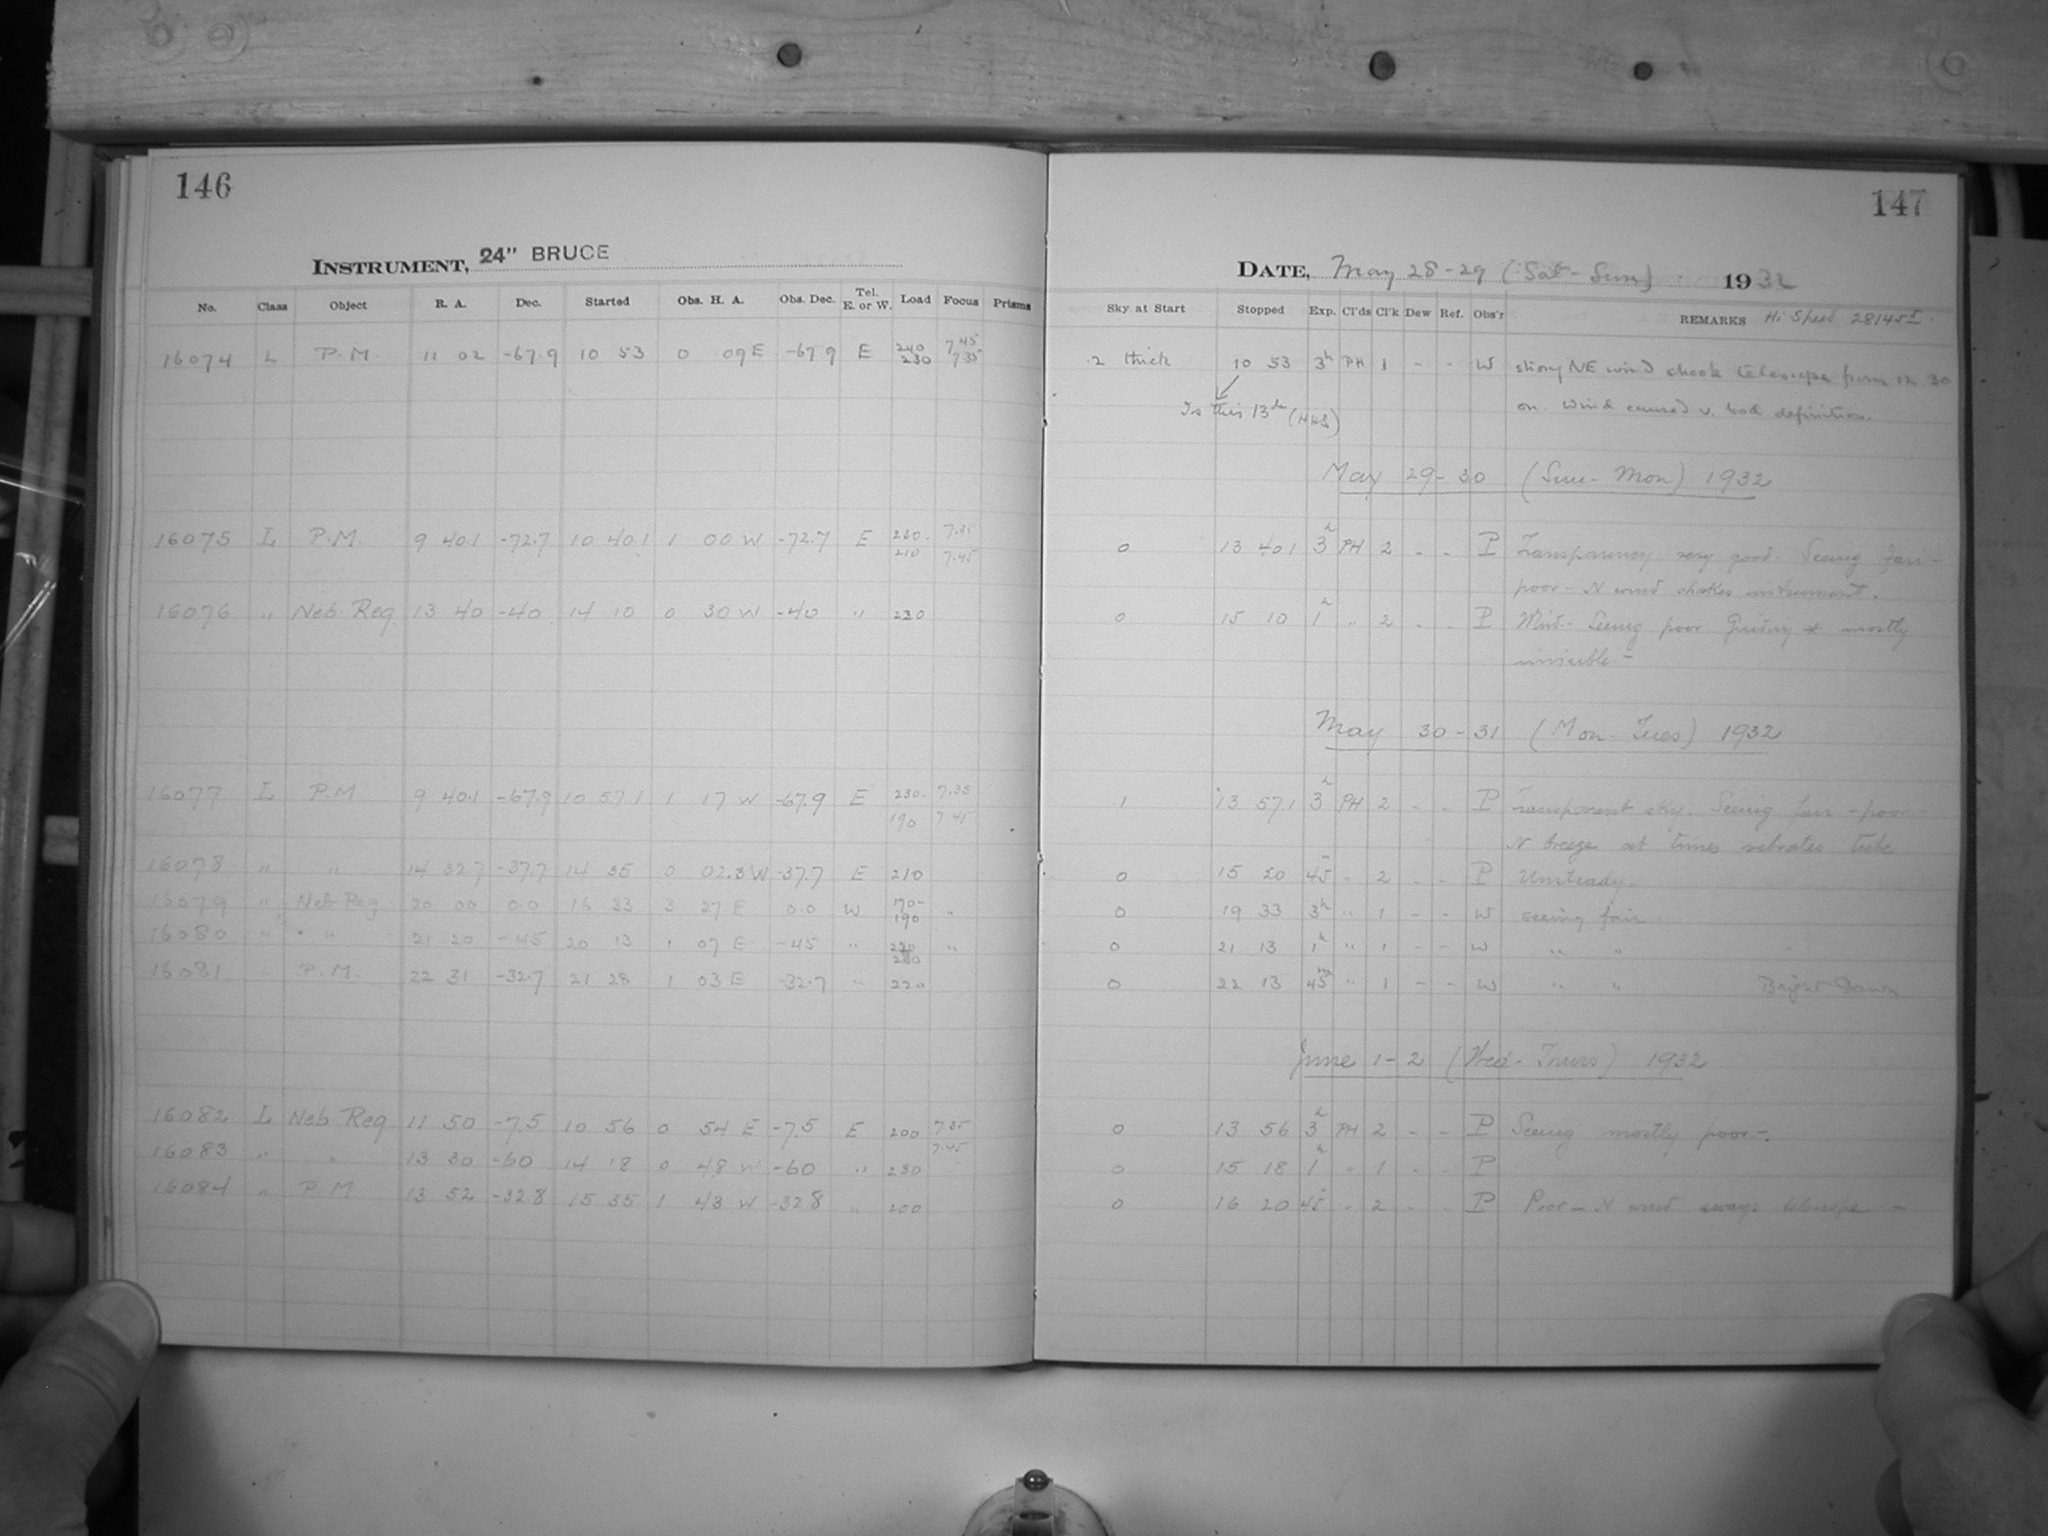 146
INSTRUMENT, 24" BRUCE
No. Class Object R. A. Dec. Started Obs. H. A. Obs. Dec. Tel. E. or W. Load Focus Prisms
16074 L P.M. 11 02 -67.9 10 53 0 09 E -67.9 E 240 7.45
230 7.35
16075 L P.M. 9 40.1 -72.7 10 40.1 1 00 W -72.7 E 230. 7.35
210 7.45
16076 " Neb. Reg. 13 40 -40 14 10 0 30 W -40 " 230
16077 L P.M 9 40.1 -67.9 10 57.1 1 17 W -67.9 E 230- 7.35
190 7.45
16078 " " 14 32.7 -37.7 14 35 0 02.3 W -37.7 E 210
16079 " Neb Reg 20 00 0.0 16 33 3 27 E 0.0 W 170- "
190
16080 " " " 21 20 -45 20 13 1 07 E -45 " "
16081 " P.M. 22 31 -32.7 21 28 1 03 E -32.7 " 220
16082 L Neb. Reg. 11 50 -7.5 10 56 0 54 E -7.5 E 200 7.35
7.45
16083 " " 13 30 -60 14 18 0 48 W -60 " 230
16084 " P M 13 52 -32.8 15 35 1 43 W -32.8 " 200
147
DATE, May 28-29 (Sat-Sun) 1932
Sky at Start Stopped Exp. Cl'ds Cl'k Dew Ref. Obs'r REMARKS Hi Speed
.2 thick 10 53 3h PH 1 - - W strong NE wind shook telescope from 12 30
Is this 13h (HHS) on. Wind caused v. bad definition.
May 29-30 (Sun-Mon) 1932
0 13 40.1 3h PH 2 - - P Transparency very good. Seeing fair-
poor - N wind shakes instrument.
0 15 10 1h " 2 - - P Wind - Seeing poor Guiding * mostly
invisible -
May 30-31 (Mon-Tues) 1932
.1 13 57.1 3h PH 2 - - P Transparent sky. Seeing fair - poor -
N breeze at times vibrates tube
0 15 20 45 " 2 - - P Unsteady.
0 19 33 3h " 1 - - W seeing fair.
0 21 13 1h " 1 - - W " "
0 22 13 45m " 1 - - W " " Bright Dawn
June 1-2 (Wed-Thurs) 1932
0 13 56 3h PH 2 - - P Seeing mostly poor -.
0 15 18 1h " 1 - - P
0 16 20 45 " 2 - - P Poor - N wind sways telescope -